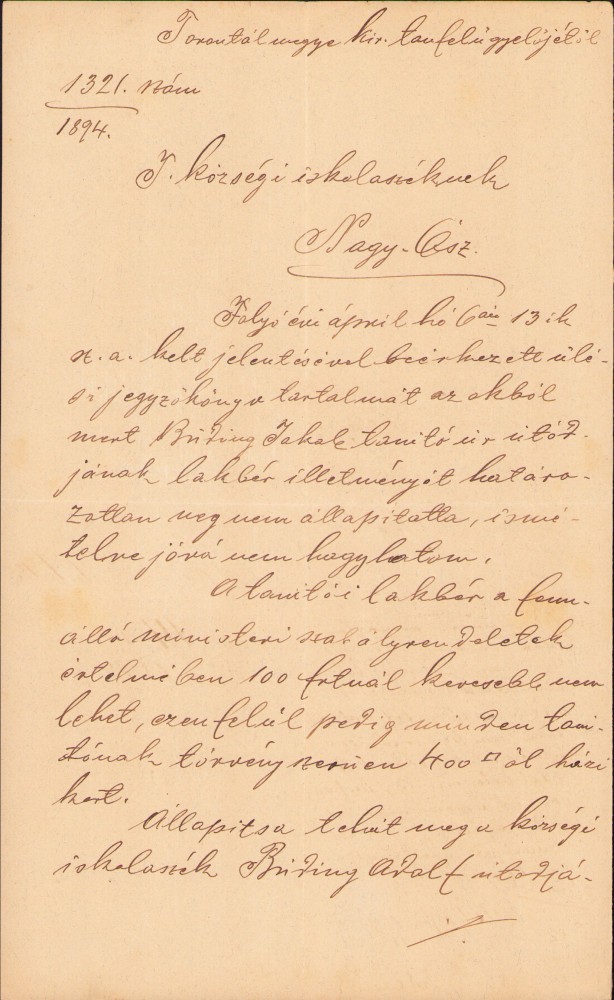 Torontál megye kir. tanfelügyelőjétől
1321. szám
1894.
T. községi iskolaszéknek
Nagy-Ősz.
Folyó évi ápril hó 6án 13 ik
sz. a. kelt jelentésével beérkezett ülé-
si jegyzőkönyv tartalmát az okból
mert Büding Jakab tanító úr utód-
jának lakbér illetményét határo-
zottan meg nem állapitotta, ismé-
telve jóvá nem hagyhatom.
A tanitói lakbér a fenn-
álló ministeri szabályrendeletek
értelmében 100 frtnál kevesebb nem
lehet, ezen felül pedig minden tani-
tónak törvényszerüen 400 □ öl házi
kert.
Állapitsa tehát meg a községi
iskolaszék Büding Adolf utodjá-
./.